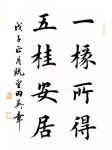 一椽所得
五桂安居
戊子正月阮堂田英章